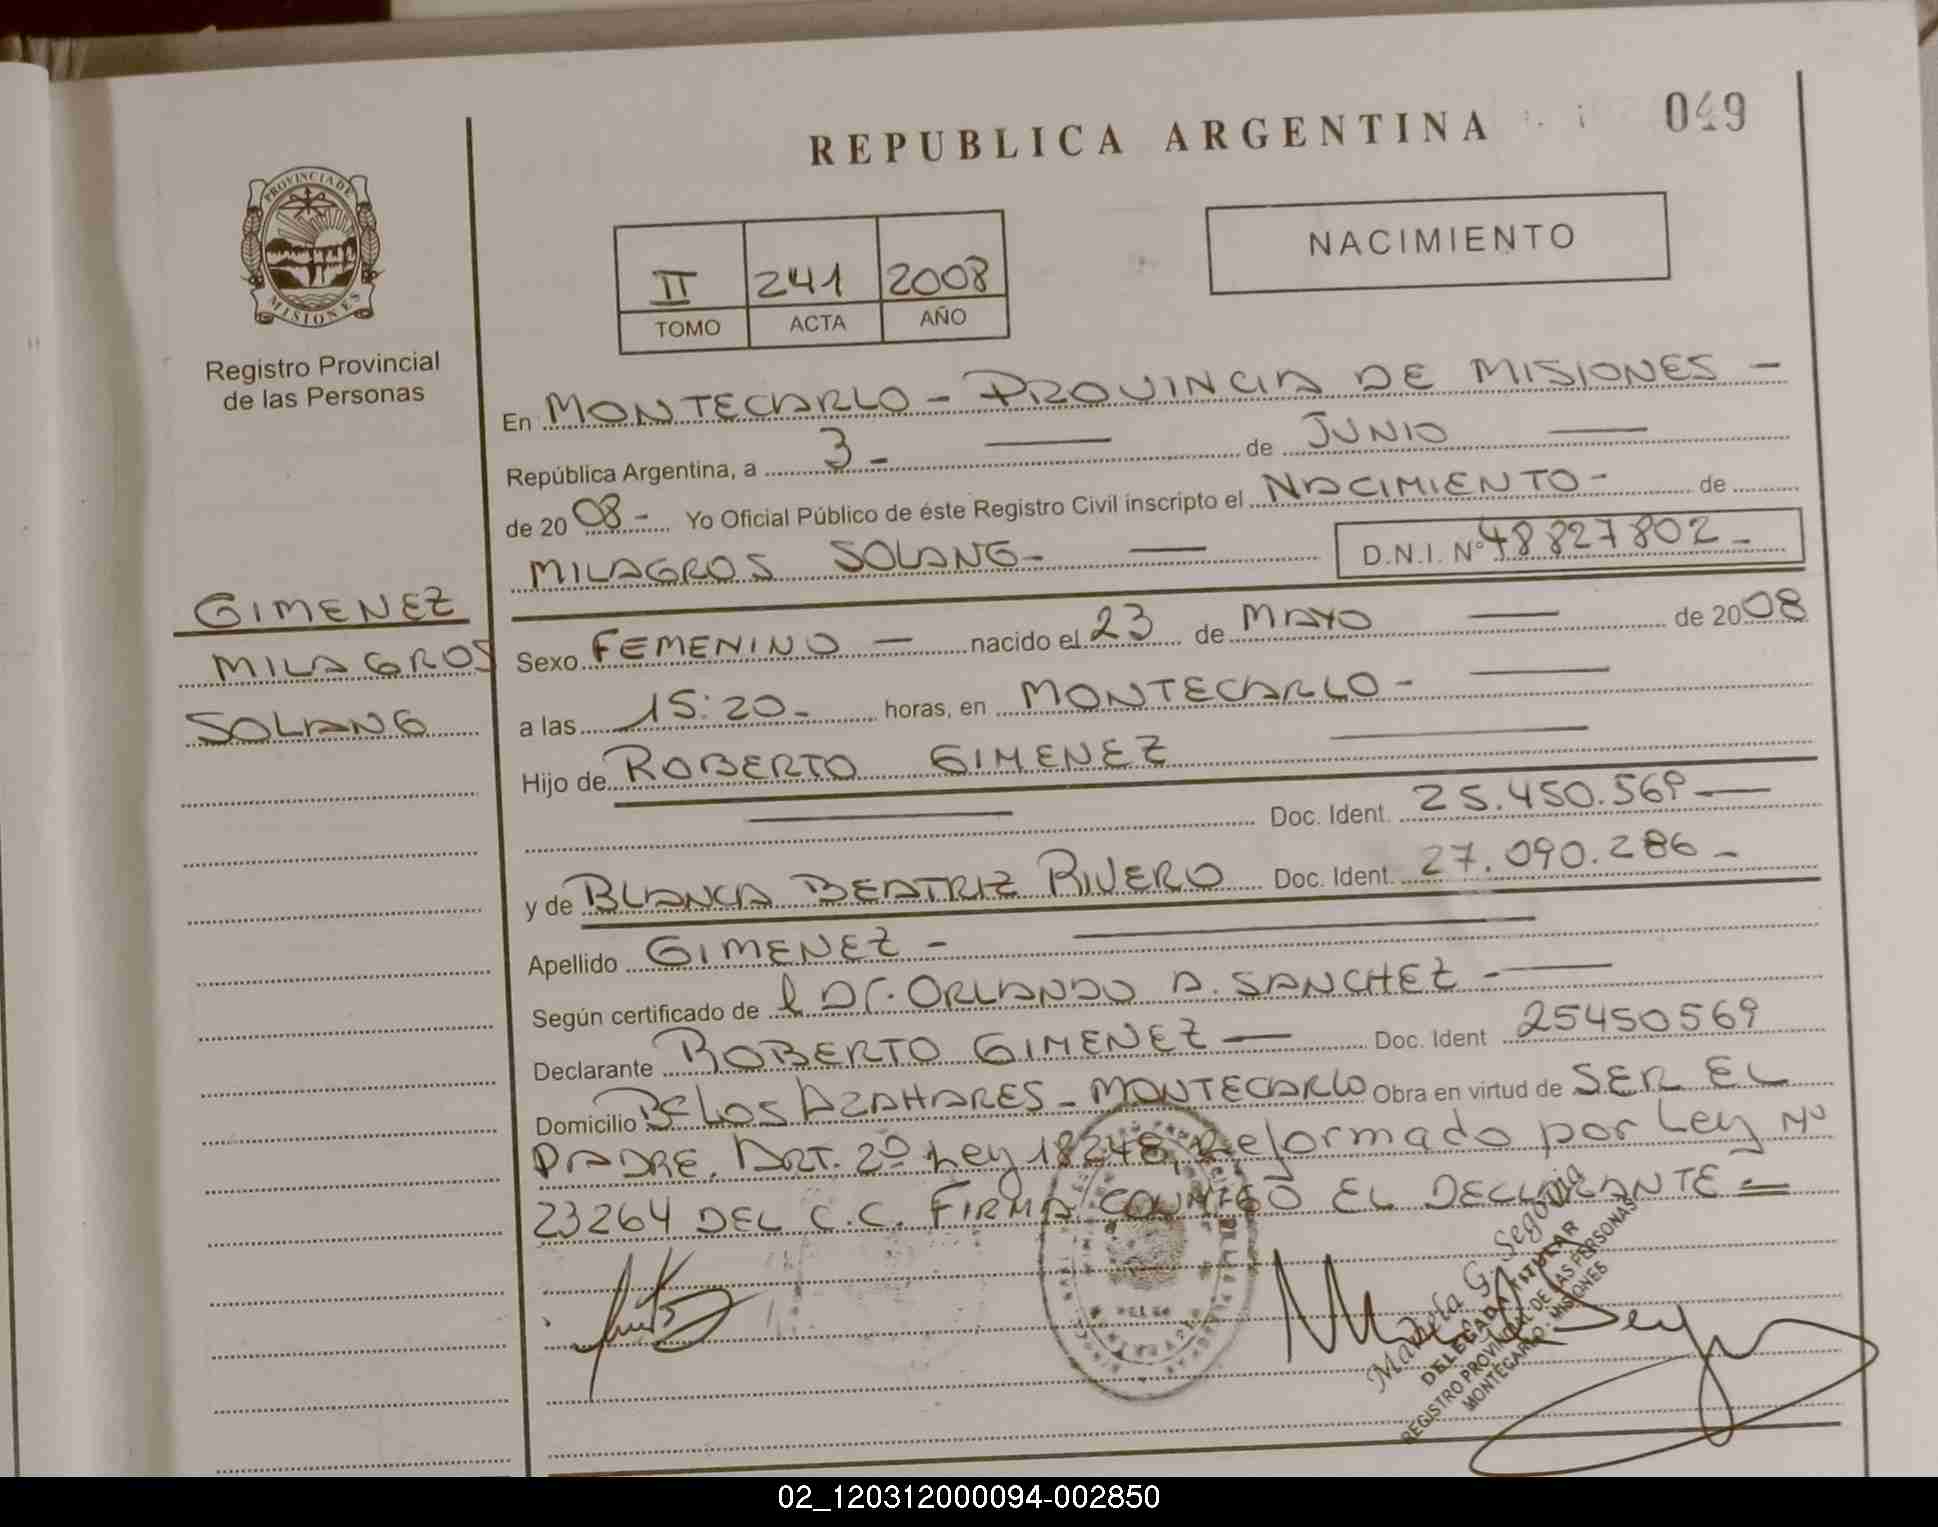 REPUBLICA ARGENTINA
049
PROVINCIA DE
MISIONES
Registro Provincial
de las Personas
NACIMIENTO
II 241 2008
TOMO ACTA AÑO
En MONTECARLO - PROVINCIA DE MISIONES -
República Argentina, a 3 - de JUNIO
de 2008 - Yo Oficial Público de éste Registro Civil inscripto el NACIMIENTO - de
MILAGROS SOLANG - D.N.I. Nº 48827802 -
GIMENEZ
MILAGROS
SOLANG
Sexo FEMENINO - nacido el 23 de MAYO de 2008
a las 15:20 - horas, en MONTECARLO -
Hijo de ROBERTO GIMENEZ
Doc. Ident. 25.450.569 -
y de BLANCA BEATRIZ RIVERO Doc. Ident. 27.090.286 -
Apellido GIMENEZ -
Según certificado de l Dr. ORLANDO A. SANCHEZ -
Declarante ROBERTO GIMENEZ - Doc. Ident 25450569
Domicilio Bº LOS AZAHARES - MONTECARLO Obra en virtud de SER EL
PADRE. ART. 2º Ley 18248, Reformado por Ley Nº
23264 DEL C.C. FIRMA CONMIGO EL DECLARANTE =
G. Segovia
DELEGADA TITULAR
REGISTRO PROVINCIAL DE LAS PERSONAS
MONTECARLO - MISIONES
02_120312000094-002850